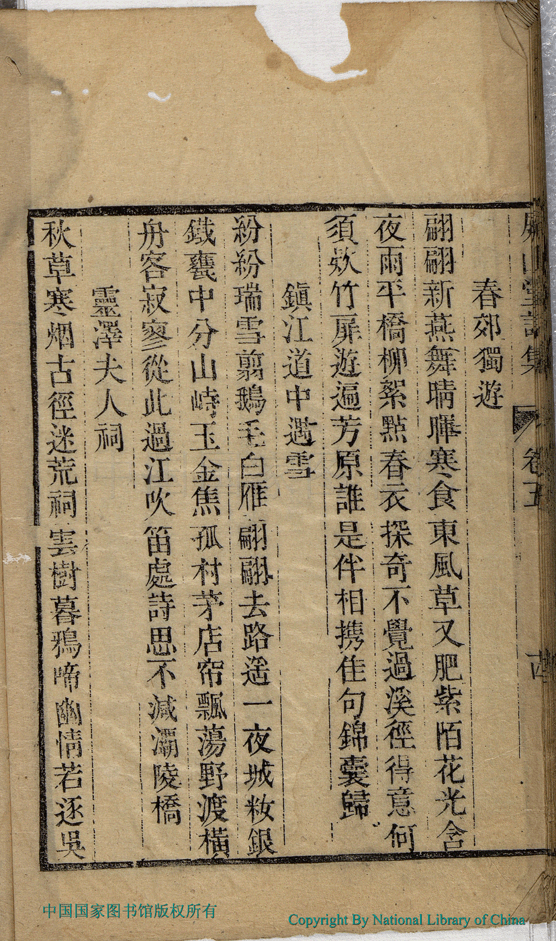 屏山堂詩集 卷五
春郊獨遊
翩翩新燕舞晴暉寒食東風草又肥紫陌花光含
夜雨平橋柳絮㸃春衣探奇不覺過溪徑得意何
須欵竹扉遊遍芳原誰是伴相携佳句錦囊歸
鎮江道中遇雪
紛紛瑞雪翦鵝毛白雁翩翩去路遙一夜城妝銀
鐵甕中分山峙玉金焦孤村茅店帘飄蕩野渡橫
舟客寂寥從此過江吹笛處詩思不減灞陵橋
靈澤夫人祠
秋草寒烟古徑迷荒祠雲樹暮鴉啼幽情若逐吳
中国国家图书馆版权所有
Copyright By National Library of China